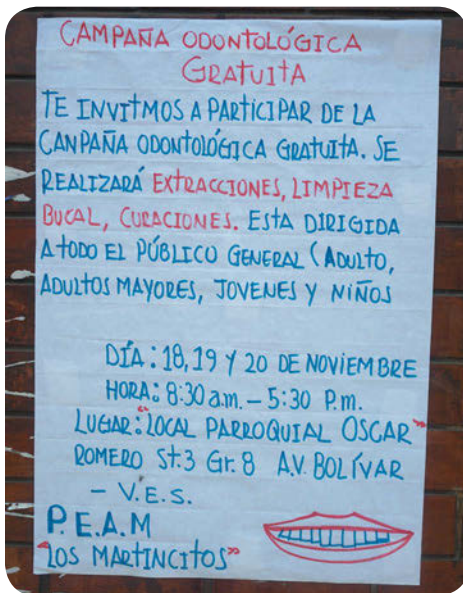 CAMPAÑA ODONTOLÓGICA
GRATUITA
TE INVITMOS A PARTICIPAR DE LA
CANPAÑA ODONTOLÓGICA GRATUITA. SE
REALIZARÁ EXTRACCIONES, LIMPIEZA
BUCAL, CURACIONES. ESTA DIRIGIDA
A TODO EL PÚBLICO GENERAL (ADULTO,
ADULTOS MAYORES, JOVENES Y NIÑOS
DÍA: 18, 19 Y 20 DE NOVIEMBRE
HORA: 8:30 a.m. – 5:30 P.m.
LUGAR: "LOCAL PARROQUIAL OSCAR"
ROMERO St.3 Gr. 8 A.V. BOLÍVAR
– V.E.S.
P.E.A.M
"LOS MARTINCITOS"